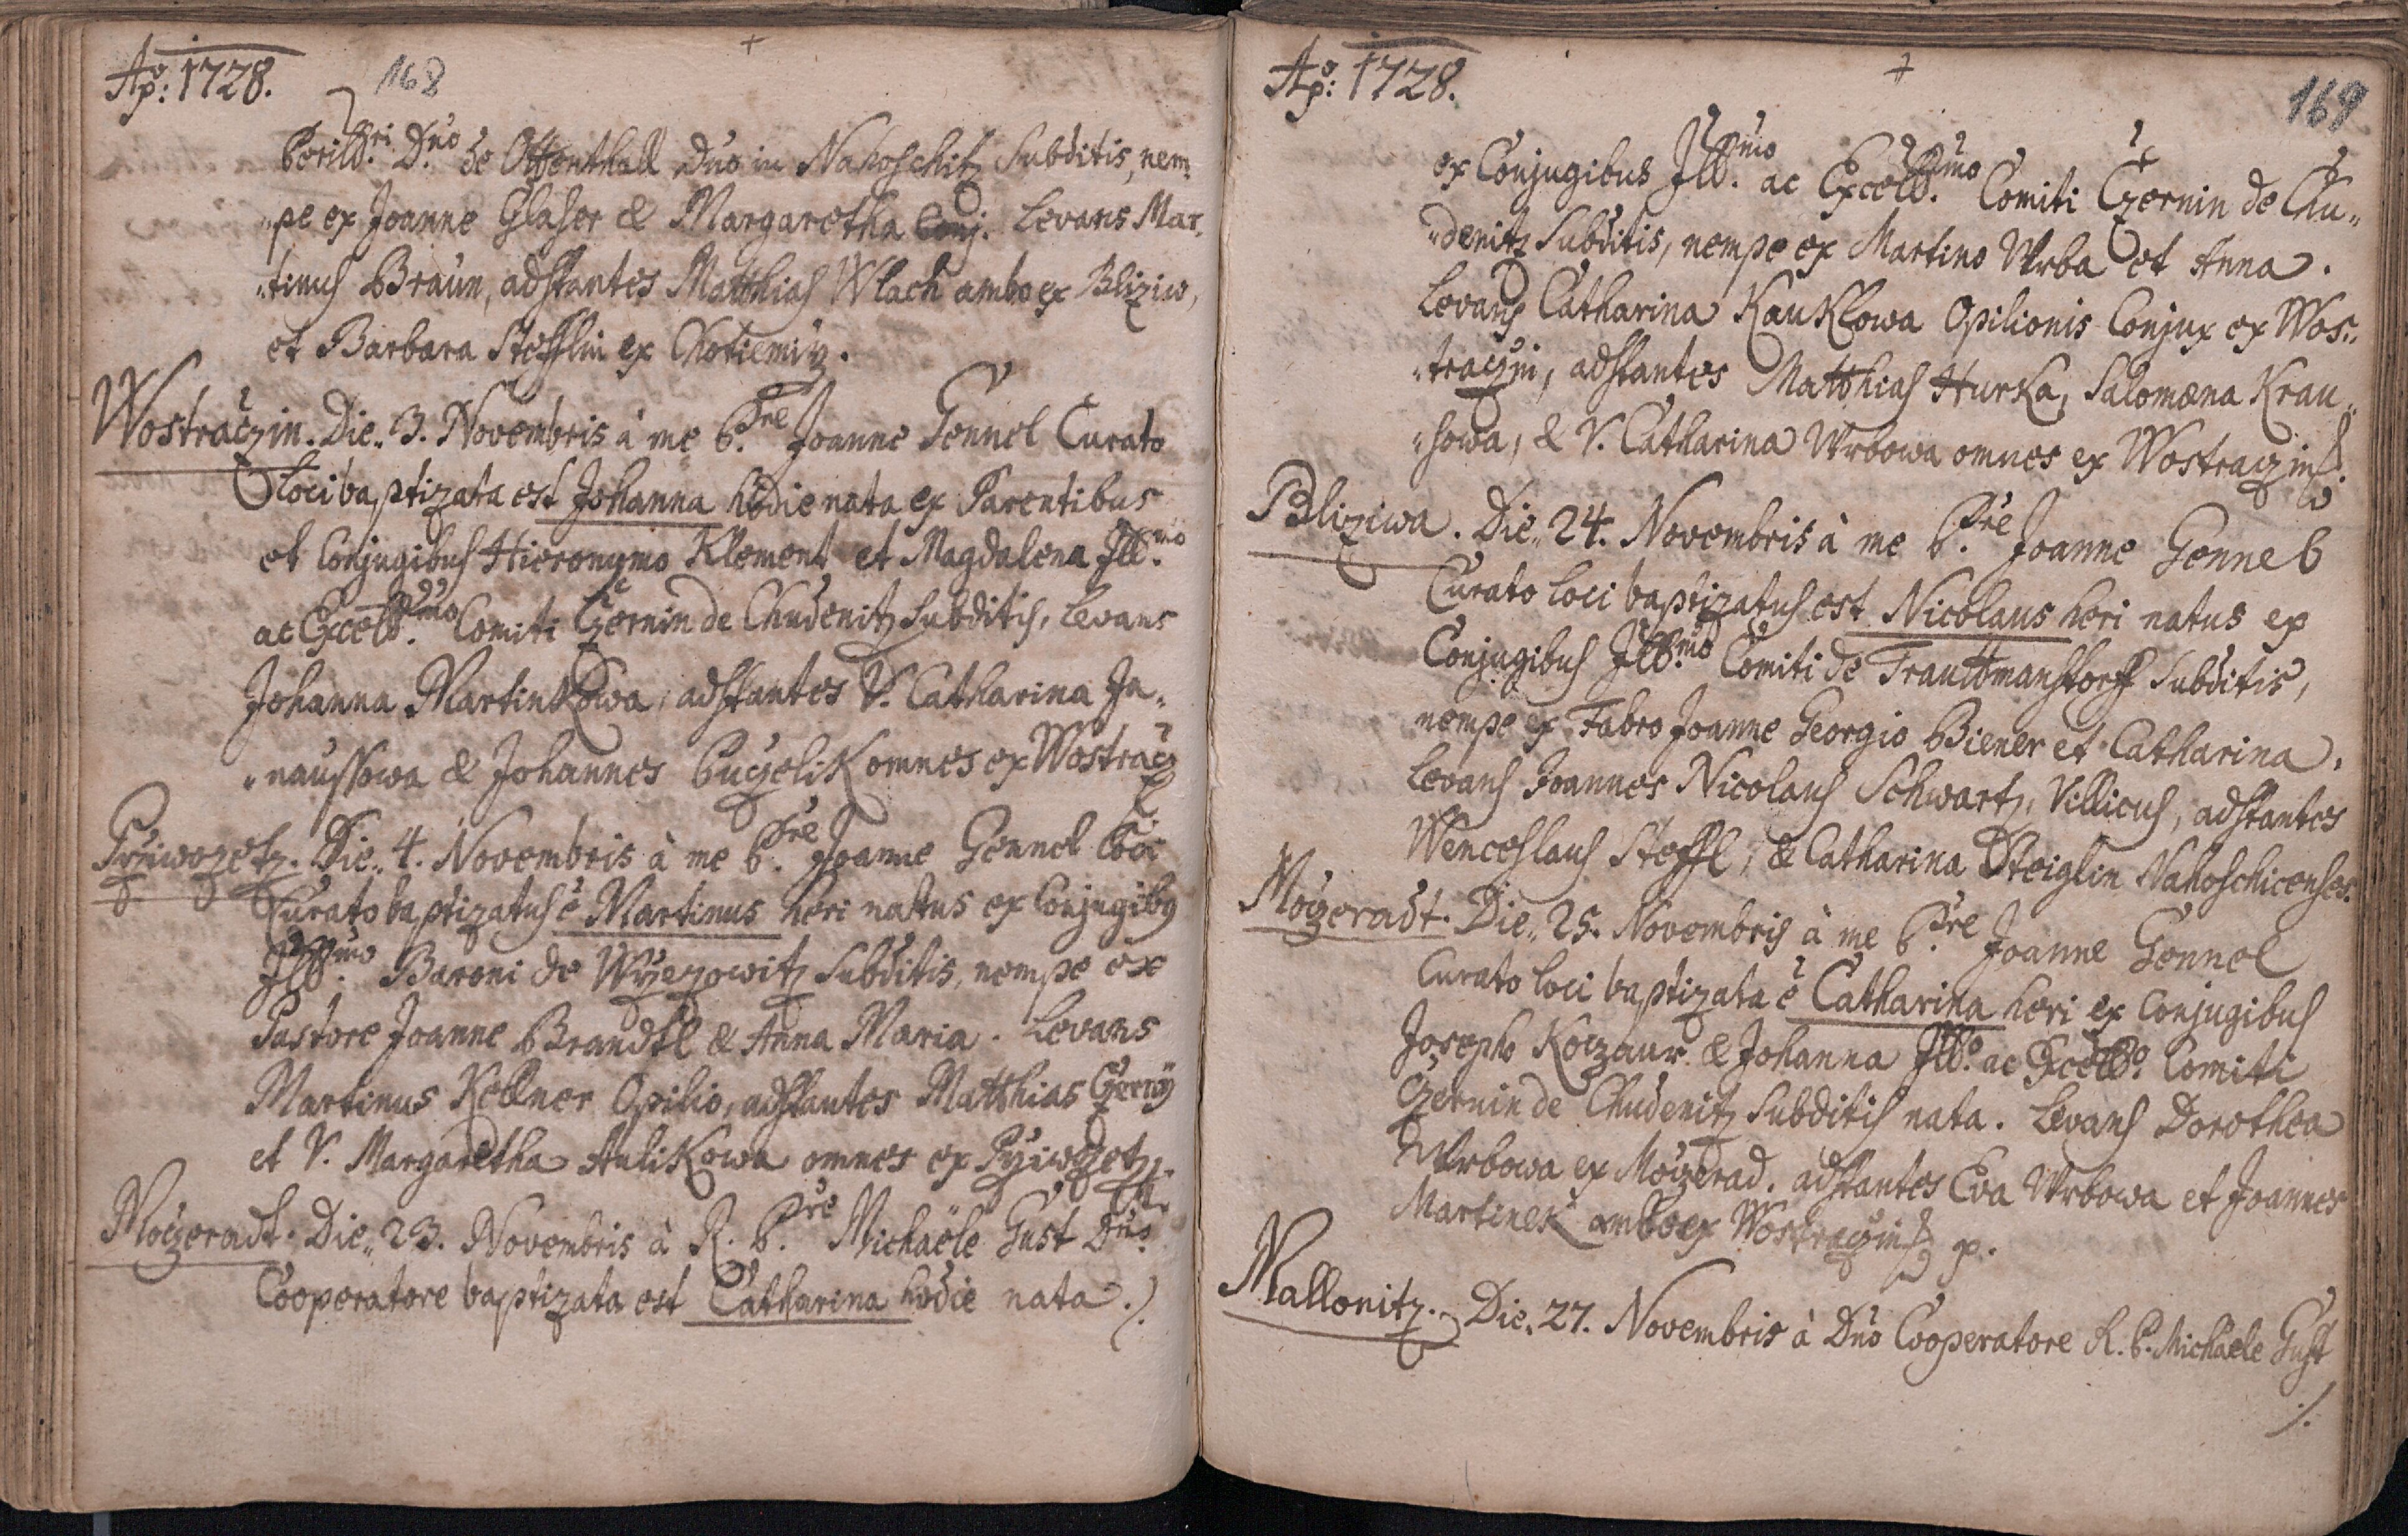 Aõ: 1728. 168
Perill.ri D.no de Ottenthall Dno in Nahoschitz Subditis, nem„
„pe ex Joanne Glaser & Margaretha Conj. Levans Mar„
„tinus Braun, adstantes Matthias Wlach ambo ex Bliziw,
et Barbara Stefflin ex Chotiemiz.
Wostraczin. Die„ 3. Novembris à me P.re Joanne Gennel Curato
Loci baptizata est Johanna hodie nata ex Parentibus
et Conjugibus Hieronymo Klement et Magdalena Ill.mo
ac Excell.mo Comiti Czernin de Chudenitz Subditis, Levans
Johanna Martinkowa, adstantes V. Catharina Ja„
„naussowa & Johannes Puczelik omnes ex Wostracz
Przïwozetz. Die„ 4. Novembris à me P.re Joanne Gennel Loci
Curato baptizatus ē Martinus heri natus ex Conjugibus
Ill.mo Baroni de Wÿezowitz Subditis, nempe ex
Pastore Joanne Brandtl & Anna Maria. Levans
Martinus Kellner Opilio, adstantes Matthias Czernÿ
et V. Margaretha Aulikowa omnes ex Pziwozetz.
Moczeradt. Die„ 23. Novembris à R. P.re Michaële Gust Dno
Cooperatore baptizata est Catharina hodie nata ./.
Aõ: 1728. 169
ex Conjugibus Ill.mo ac Excell.mo Comiti Czernin de Chu„
„denitz Subditis, nempe ex Martino Wrba et Anna.
Levans Catharina Kauklowa Opilionis Conjux ex Wos„
„traczin, adstantes Matthias Hurka, Salomæna Krau„
„sowa, & V. Catharina Wrbowa omnes ex Wostraczin.
Bliziwa. Die„ 24. Novembris à me P.re Joanne Gennel
Curato loci baptizatus est Nicolaus heri natus ex
Conjugibus Ill.mo Comiti de Trauttmanstorff Subditis,
nempe ex Fabro Joanne Georgio Biener et Catharina.
Levans Joannes Nicolaus Schwartz, Villicus, adstantes
Wenceslaus Steffl, & Catharina Steiglin Nahoschicenses.
Moczeradt. Die„ 25. Novembris à me P.re Joanne Gennel
Curato loci baptizata ē Catharina heri ex Conjugibus
Josepho Koczaur & Johanna Ill.o ac Excell.o Comiti
Czernin de Chudenitz Subditis nata. Levans Dorothea
Wrbowa ex Moczerad. adstantes Eva Wrbowa et Joannes
Martinek ambo ex Wostraczin p.
Mallonitz. Die„ 27. Novembris à Dno Cooperatore R. P. Michaële Gust
./.